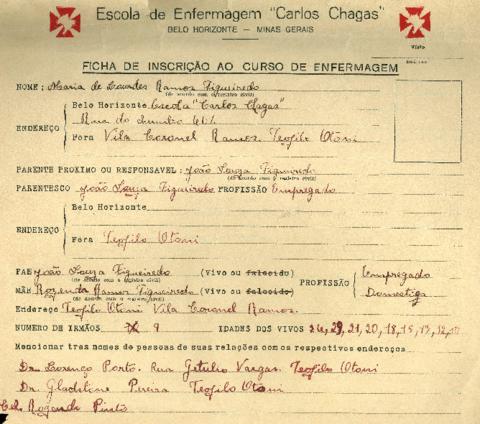 Escola de Enfermagem "Carlos Chagas"
BELO HORIZONTE — MINAS GERAIS
Visto
FICHA DE INSCRIÇÃO AO CURSO DE ENFERMAGEM
NOME: Maria de Lourdes Ramos Figueiredo
(de acordo com o registro civil)
Belo Horizonte Escola "Carlos Chagas"
ENDEREÇO
Rua do
Fora Vila Coronel Ramos. Teofilo Otoni
PARENTE PROXIMO OU RESPONSAVEL: João Souza Figueiredo
(de acordo com o registro civil)
PARENTESCO João Souza Figueiredo PROFISSÃO Empregado
Belo Horizonte
ENDEREÇO
Fora Teofilo Otoni
PAE João Souza Figueiredo (Vivo ou falecido) PROFISSÃO Empregado
(de acordo com o registro civil)
MÃE Rozenda Ramos Figueiredo (Vivo ou falecido) Domestica
(de acordo com o registro civil)
Endereço Teofilo Otoni Vila Coronel Ramos.
NUMERO DE IRMÃOS 9 IDADES DOS VIVOS 24, 21, 20, 18, 15, 13, 12,
Mencionar tres nomes de pessoas de suas relações com os respectivos endereços
Dr. Lorenço Porto. Rua Getulio Vargas. Teofilo Otoni
Dr. Gladstone Pereira Teofilo Otoni
Cel. Rogendo Pinto